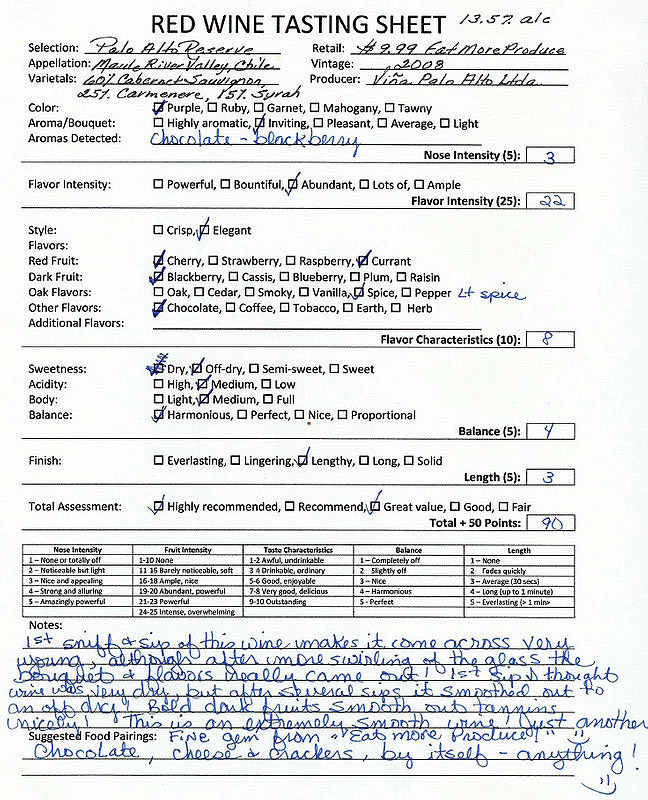 RED WINE TASTING SHEET 13.5% alc
Selection: Palo Alto Reserve Retail: $9.99 Eat More Produce
Appellation: Maule River Valley, Chile Vintage: 2008
Varietals: 60% Cabernet Sauvignon, Producer: Viña Palo Alto Ltda.
25% Carmenere, 15% Syrah
Color: ☑ Purple, ☐ Ruby, ☐ Garnet, ☐ Mahogany, ☐ Tawny
Aroma/Bouquet: ☐ Highly aromatic, ☑ Inviting, ☐ Pleasant, ☐ Average, ☐ Light
Aromas Detected: Chocolate - blackberry
Nose Intensity (5): 3
Flavor Intensity: ☐ Powerful, ☐ Bountiful, ☑ Abundant, ☐ Lots of, ☐ Ample
Flavor Intensity (25): 22
Style: ☐ Crisp, ☑ Elegant
Flavors:
Red Fruit: ☑ Cherry, ☐ Strawberry, ☐ Raspberry, ☑ Currant
Dark Fruit: ☑ Blackberry, ☐ Cassis, ☐ Blueberry, ☐ Plum, ☐ Raisin
Oak Flavors: ☐ Oak, ☐ Cedar, ☐ Smoky, ☐ Vanilla, ☑ Spice, ☐ Pepper Lt spice
Other Flavors: ☑ Chocolate, ☐ Coffee, ☐ Tobacco, ☐ Earth, ☐ Herb
Additional Flavors:
Flavor Characteristics (10): 8
Sweetness: ☑ Dry, ☑ Off-dry, ☐ Semi-sweet, ☐ Sweet
Acidity: ☐ High, ☑ Medium, ☐ Low
Body: ☐ Light, ☑ Medium, ☐ Full
Balance: ☑ Harmonious, ☐ Perfect, ☐ Nice, ☐ Proportional
Balance (5): 4
Finish: ☐ Everlasting, ☐ Lingering, ☑ Lengthy, ☐ Long, ☐ Solid
Length (5): 3
Total Assessment: ☑ Highly recommended, ☐ Recommend, ☑ Great value, ☐ Good, ☐ Fair
Total + 50 Points: 90
Nose Intensity Fruit Intensity Taste Characteristics Balance Length
1 – None or totally off 1-10 None 1-2 Awful, undrinkable 1 – Completely off 1 – None
2 – Noticeable but light 11-15 Barely noticeable, soft 3-4 Drinkable, ordinary 2 – Slightly off 2 – Fades quickly
3 – Nice and appealing 16-18 Ample, nice 5-6 Good, enjoyable 3 – Nice 3 – Average (30 secs)
4 – Strong and alluring 19-20 Abundant, powerful 7-8 Very good, delicious 4 – Harmonious 4 – Long (up to 1 minute)
5 – Amazingly powerful 21-23 Powerful 9-10 Outstanding 5 – Perfect 5 – Everlasting (> 1 min)
24-25 Intense, overwhelming
Notes:
1st sniff & sip of this wine makes it come across very
young, although after more swirling of the glass the
bouquet & flavors really came out! 1st sip I thought
wine was very dry, but after several sips it smoothed out to
an off dry! Bold dark fruits smooth out tannins
nicely! This is an extremely smooth wine! Just another
Suggested Food Pairings: Fine gem from "Eat more Produce!"
Chocolate, cheese & crackers, by itself - anything!